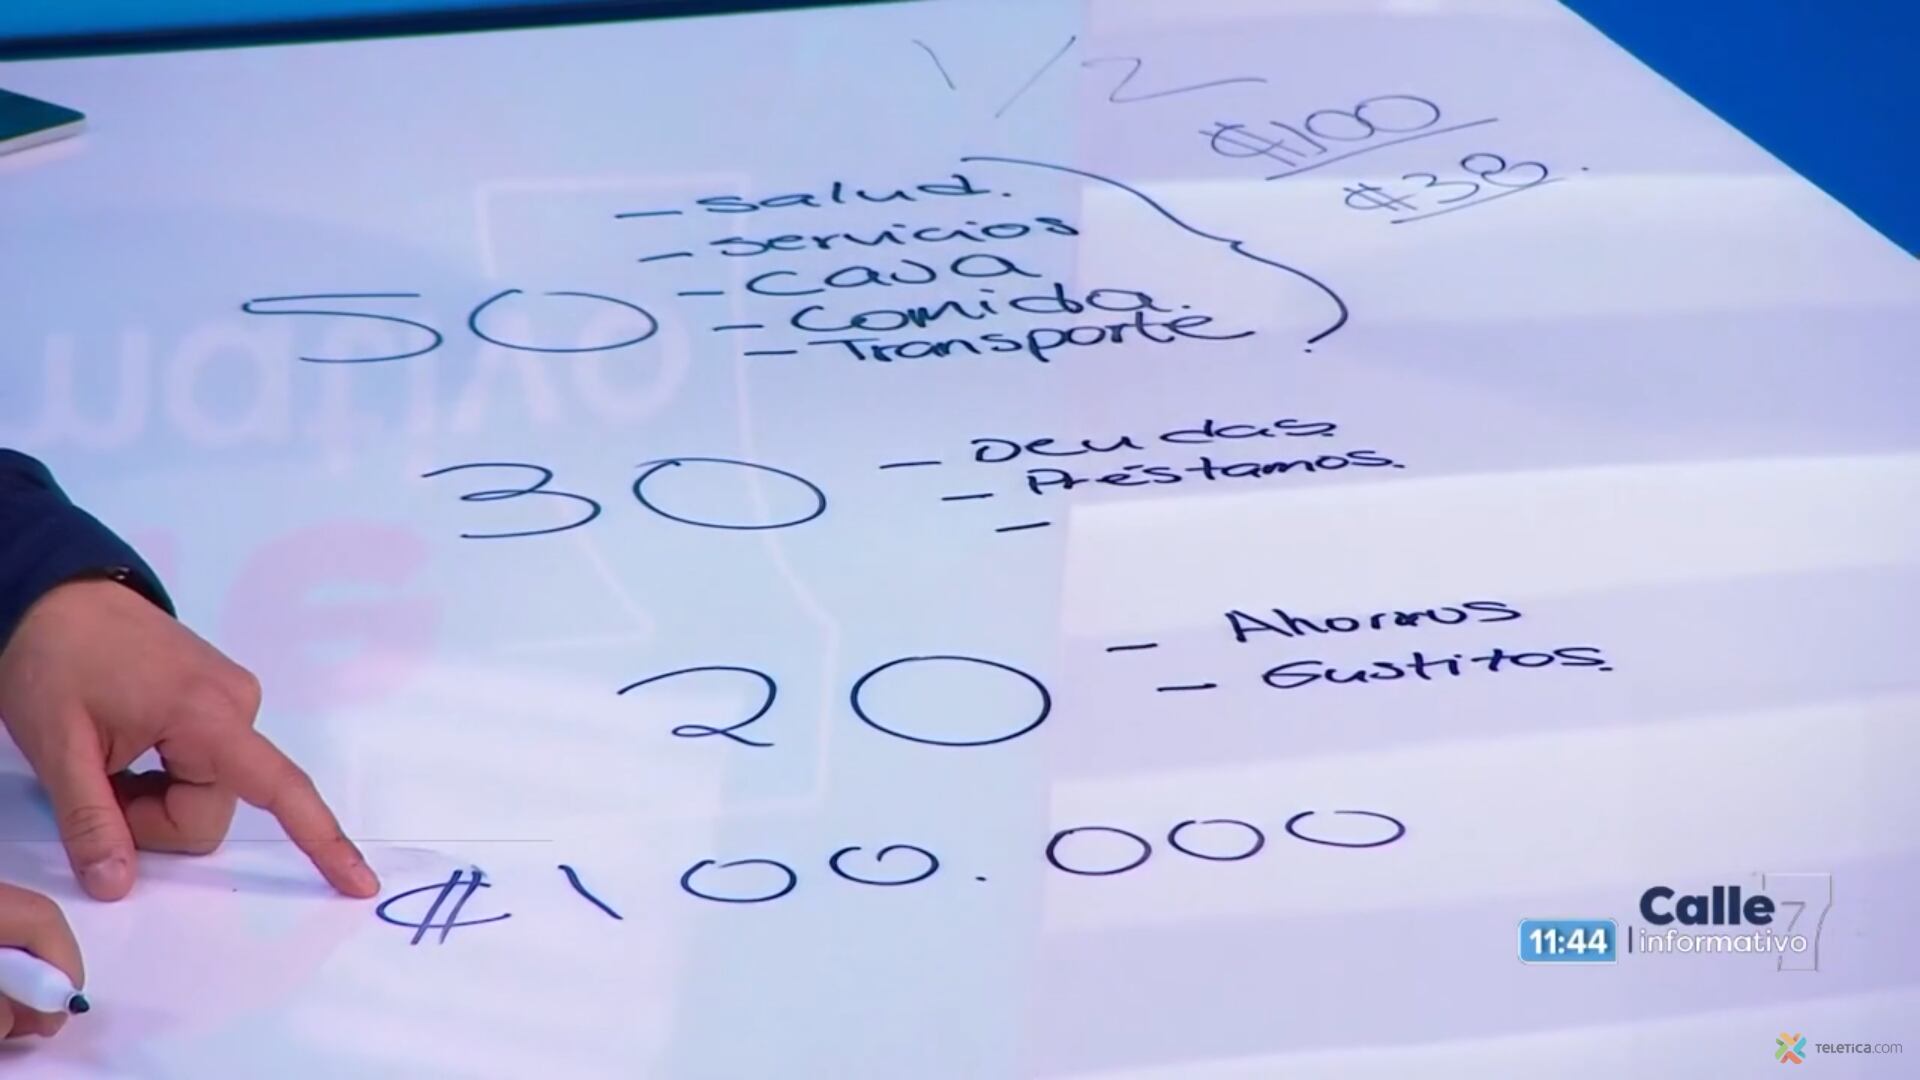 1/2
₡100
₡38.
- salud.
- servicios
- casa
50 - Comida.
- Transporte
30 - Deudas.
- Préstamos.
-
- Ahorros
20 - Gustitos.
₡100.000
Calle 7
11:44 informativo
TELETICA.COM